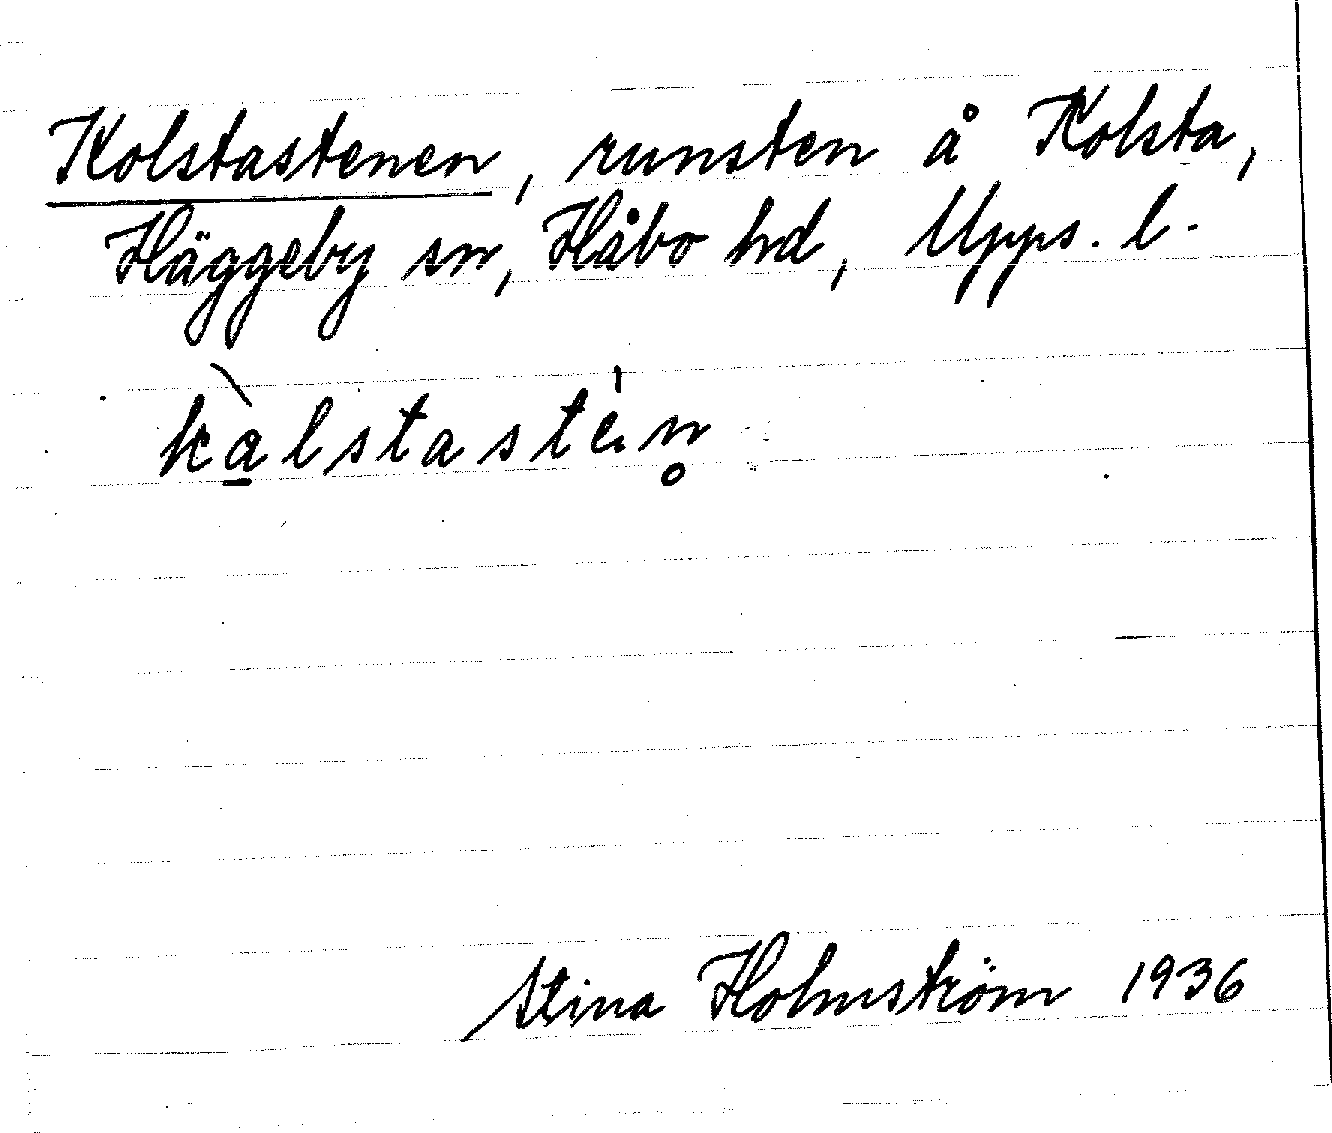 Kolstastenen, runsten å Kolsta,
Häggeby sn, Håbo hd, Upps. l.
kа̱̀lstaste̩ˈn̥
Stina Holmström 1936